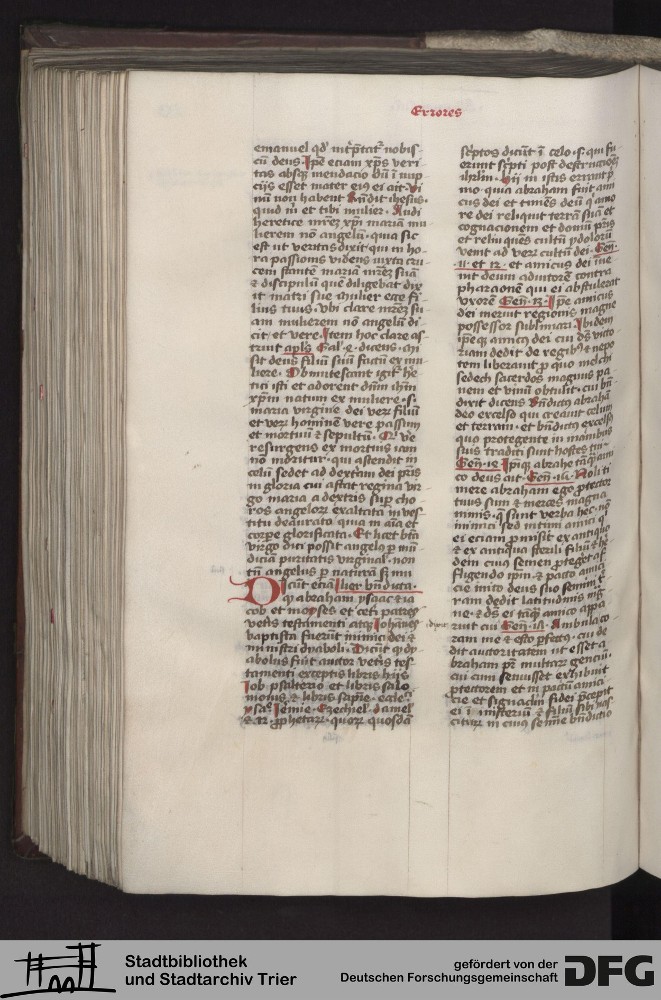 Errores
emanuel qd' int'p̄tat' nobis-
cū deus. Ip̄e eciam xp̄s veri
tas absq; mendacio dū ī nup
cijs esset mater eiꝫ ei ait. Vi
nū non habent. Rn̄dit ihesus.
quid m̄ et tibi mulier. Audi
heretice mr̄eꝫ xp̄i mariā mu
lierem nō angelū. quia sic
est ut veritas dixit qui in ho
ra passionis videns iuxta cru
cem stantē mariā mr̄eꝫ suā
& discipulū quē diligebat dix
it matri sue mulier ecce fi
lius tuus. Vbi clare mr̄eꝫ su
am mulierem nō angelū di
cit, et vere. Item hoc clare as
truit apl̄s Gal. 4. dicens. mi
sit deus filiū suū factū ex mu
liere. Obmutescant igit' he
tici isti et adorent dn̄m ihm̄
xp̄m natum ex muliere .s.
maria virgine dei veꝝ filiū
et veꝝ hominē vere passum
et mortuū & sepultū. Et v̄e
resurgens ex mortuis iam
nō moritur. qui ascendit in
celū sedet ad dextam dei pr̄is
in gloria cui astat regina vir
go maria a dextris sup̄ cho
ros angeloꝝ exaltata in ves
titu deaurato. quia in aīa et
corp̄e glorificata. Et licet btā
virgo dici possit angelꝰ p̱ mū
diciā puritatis virginal'. non
tn̄ angelus p̱ naturā si mi
Dicūt eciā Iuer bn̄dicta.
qꝫ abraham ysaac & ia
cob et moyses et cet'i patres
vet'is testamenti atqꝫ Iohānes
baptista fuerūt inimici dei &
ministri dyaboli. Dicūt qꝫ dy
abolus fuit auctor vet'is tes-
tamenti exceptis libris hijs
Iob psalterio et libris salo
monis & libris sapīe. eccle'.
ysa'. Ieremie. Ezechiel. daniel
& 12. p̱phetaꝝ. quoꝝ quosdā
scͥptos dicūt ī celo .s. qui fu
erunt scͥpti post destructiōꝫ
ihrlm̄. Hij in istis errant p̱
mo quia abraham fuit ami
cus dei et timēs deū qͥ amo
re dei reliquit terrā suā et
cognacionem et domū pr̄is
et relinquēs cultū ydoloꝝ
venit ad veꝝ cultū dei. Gen̄.
11. et 12. et amicus dei me
ruit deum adiutorē contra
pharaonē qui ei abstulerat
vxorē Gen̄. 12. Ip̄e amicus
dei meruit regionis magne
possessor sublimari. Ibidem
ip̄eqꝫ amicꝰ dei cui dꝫ victo
riam dedit de regibꝰ & nepo
tem liberauit p̱ quo melchi
sedech sacerdos magnus pa
nem et vinū obtulit. cui bn̄
dixit dicens Bn̄dictꝰ abrahā
deo excelso qui creauit celum
et terram. et bn̄dictꝰ excelsꝰ
quo protegente in manibus
tuis traditi sunt hostes tui.
Gen̄. 14. Ipiqꝫ abrahe tāqͣꝫ ami
co deus ait. Gen̄. 15. Noli ti
mere abraham ego p̱tector
tuus sum & merces magna
nimis. q̄ sunt verba hec. nō
inimici sed intimi amici qͥ
ei eciam p̱misit ex antiquo
& ex antiqua sterili filiū & he
dem cuiꝰ semen p̱teget af
fligendo ip̄m. & pacto amici
cie inito deus suo semini t̄
ram dedit latitudinis mag
ne. & dꝫ ei tāqͣꝫ amico appa
ruit cui Gen̄. 17. Ambula co
ram me & esto p̱fectꝰ. cui de
dit auctoritatem ut esset a
braham pr̄ multaꝝ genciū.
cui eciam
ptectorem et in pactū amici
cie et signaclm̄ fidei p̄cepit
ei ī misteriū & filiū sibi nas
citur in cuiꝰ semīe bn̄dictio
Stadtbibliothek
und Stadtarchiv Trier
gefördert von der
Deutschen Forschungsgemeinschaft
DFG